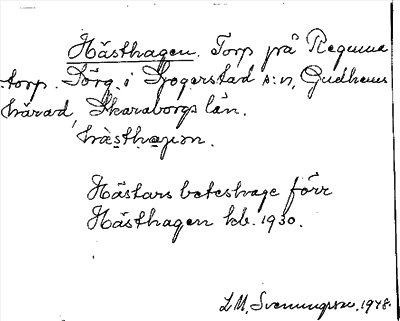 Hästhagen. Torp på Regumatorp. Sörg. i Segerstad s:n, Gudhems
härad, Skaraborgs län.
hæsthaɡən.
Hästars beteshage förr
Hästhagen kb. 1930.
L. M. Svenungsson. 1948.